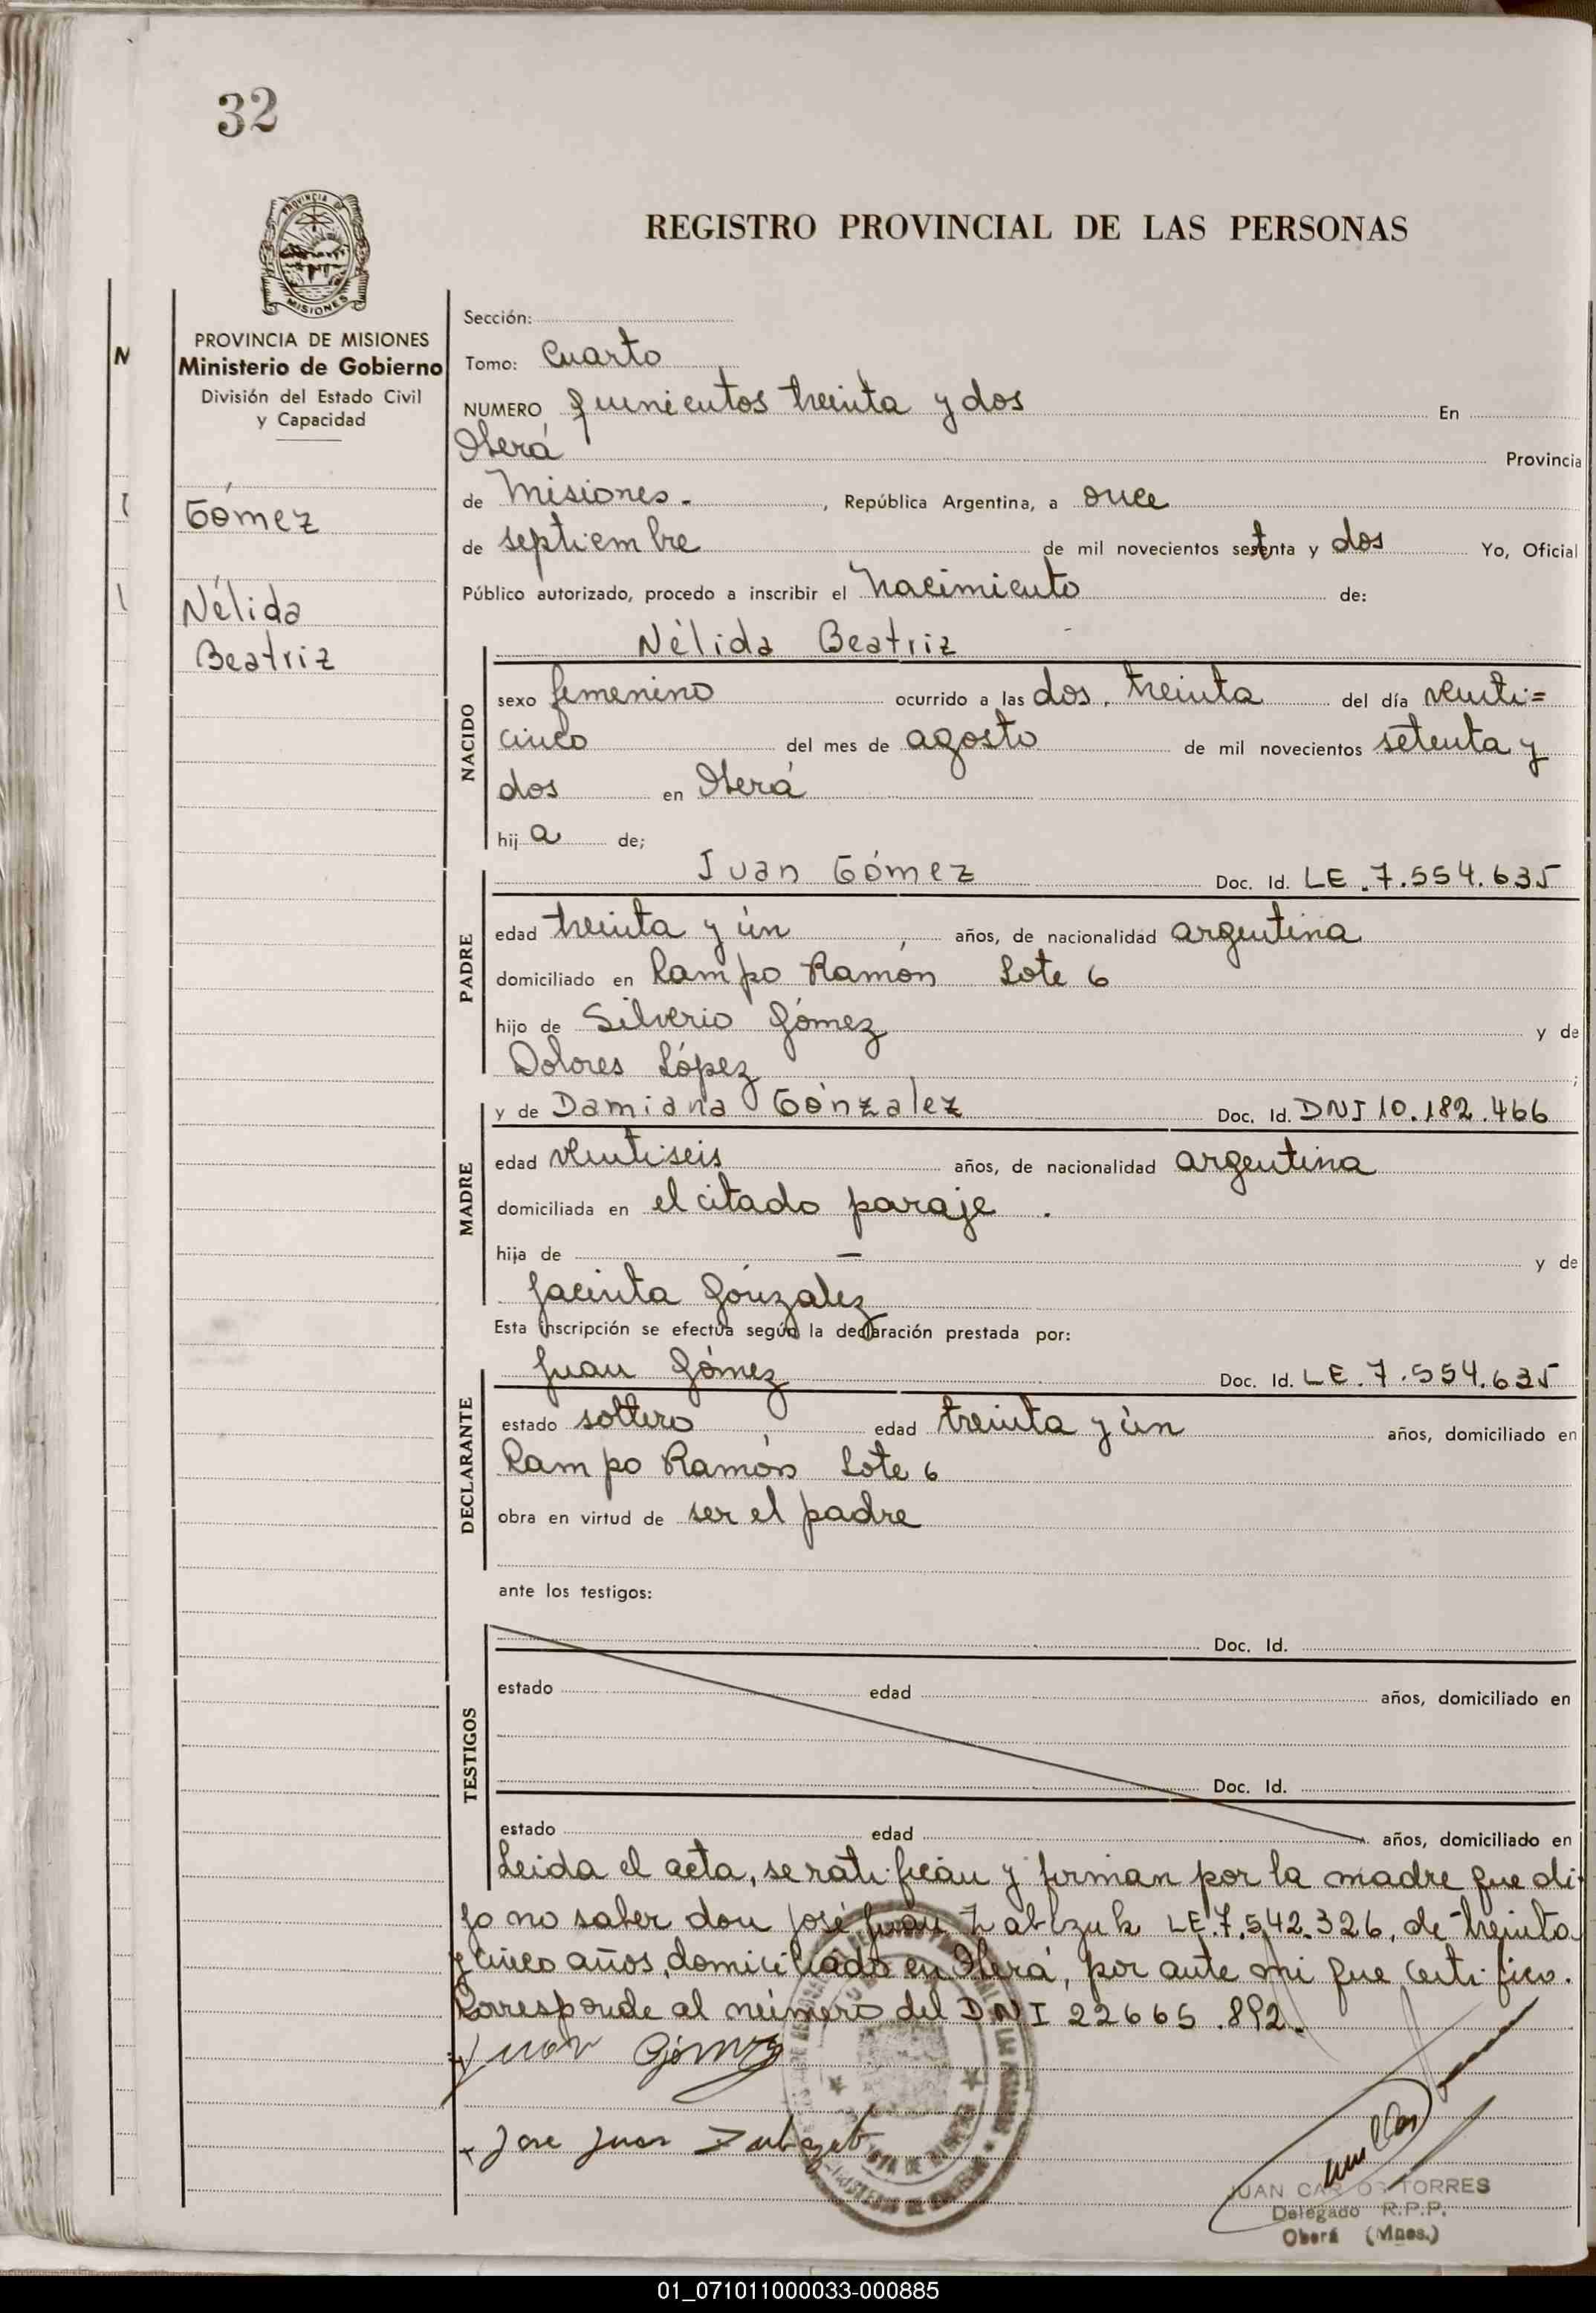 32
REGISTRO PROVINCIAL DE LAS PERSONAS
PROVINCIA DE MISIONES
Ministerio de Gobierno
División del Estado Civil
y Capacidad
Gómez
Nélida
Beatriz
Sección:
Tomo: Cuarto
NUMERO quinientos treinta y dos En
Oberá Provincia
de Misiones. , República Argentina, a once
de septiembre de mil novecientos setenta y dos Yo, Oficial
Público autorizado, procedo a inscribir el nacimiento de:
Nélida Beatriz
NACIDO
sexo femenino ocurrido a las dos, treinta del día venti=
cinco del mes de agosto de mil novecientos setenta y
dos en Oberá
hij a de;
PADRE
Juan Gómez Doc. Id. LE.7.554.635
edad treinta y ún años, de nacionalidad argentina
domiciliado en Campo Ramón Lote 6
hijo de Silverio Gómez y de
Dolores López ;
MADRE
y de Damiana Gónzalez Doc. Id. DNI 10.182.466
edad ventiseis años, de nacionalidad argentina
domiciliada en el citado paraje .
hija de — y de
Jacinta Gónzalez
Esta inscripción se efectúa según la declaración prestada por:
DECLARANTE
Juan Gómez Doc. Id. LE.7.554.635
estado soltero edad treinta y ún años, domiciliado en
Campo Ramón Lote 6
obra en virtud de ser el padre
ante los testigos:
TESTIGOS
Doc. Id.
estado edad años, domiciliado en
Doc. Id.
estado edad años, domiciliado en
Leida el acta, se ratifican y firman por la madre que di-
jo no saber don José Juan LE.7.542.326, de treinta
y cinco años, domiciliado en Oberá, por ante mi que certifico.
Corresponde al número del DNI 22665.892.
Juan Gómez
Jose Juan
JUAN CARLOS TORRES
Delegado R.P.P.
Oberá (Mnes.)
01_071011000033-000885